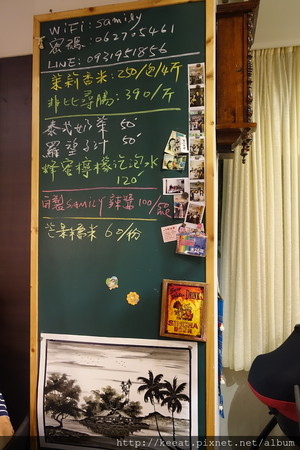 WiFi: samily
密碼: 062705461
LINE: 0931951856
茉莉香米: 250/包/4斤
非比尋腸: 390/斤
泰式奶茶 50
羅望子汁 50
蜂蜜檸檬泡泡水
120
自製SAMILY辣醬 100/
芒果糯米 60/份
SINGHA
http://keeat.pixnet.net/album